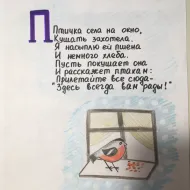 Птичка села на окно,
Кушать захотела.
Я насыплю ей пшена
И немного хлеба.
Пусть покушает она
И расскажет птахам:
"Прилетайте все сюда-
"Здесь всегда вам рады!"